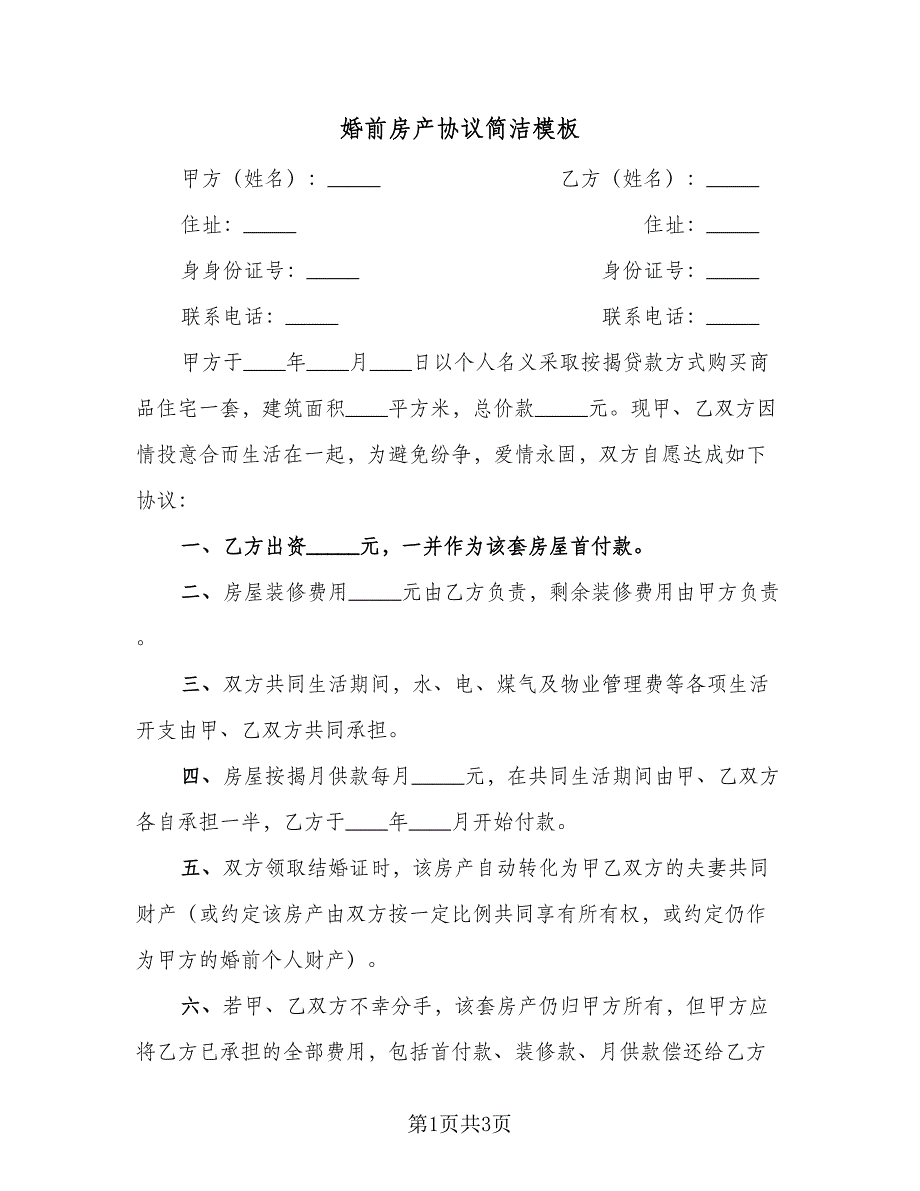 婚前房产协议简洁模板
甲方（姓名）：_____ 乙方（姓名）：_____
住址：_____ 住址：_____
身身份证号：_____ 身份证号：_____
联系电话：_____ 联系电话：_____
甲方于____年____月____日以个人名义采取按揭贷款方式购买商
品住宅一套，建筑面积____平方米，总价款_____元。现甲、乙双方因
情投意合而生活在一起，为避免纷争，爱情永固，双方自愿达成如下
协议：
一、乙方出资_____元，一并作为该套房屋首付款。
二、房屋装修费用_____元由乙方负责，剩余装修费用由甲方负责
。
三、双方共同生活期间，水、电、煤气及物业管理费等各项生活
开支由甲、乙双方共同承担。
四、房屋按揭月供款每月_____元，在共同生活期间由甲、乙双方
各自承担一半，乙方于____年____月开始付款。
五、双方领取结婚证时，该房产自动转化为甲乙双方的夫妻共同
财产（或约定该房产由双方按一定比例共同享有所有权，或约定仍作
为甲方的婚前个人财产）。
六、若甲、乙双方不幸分手，该套房产仍归甲方所有，但甲方应
将乙方已承担的全部费用，包括首付款、装修款、月供款偿还给乙方
第1页共3页